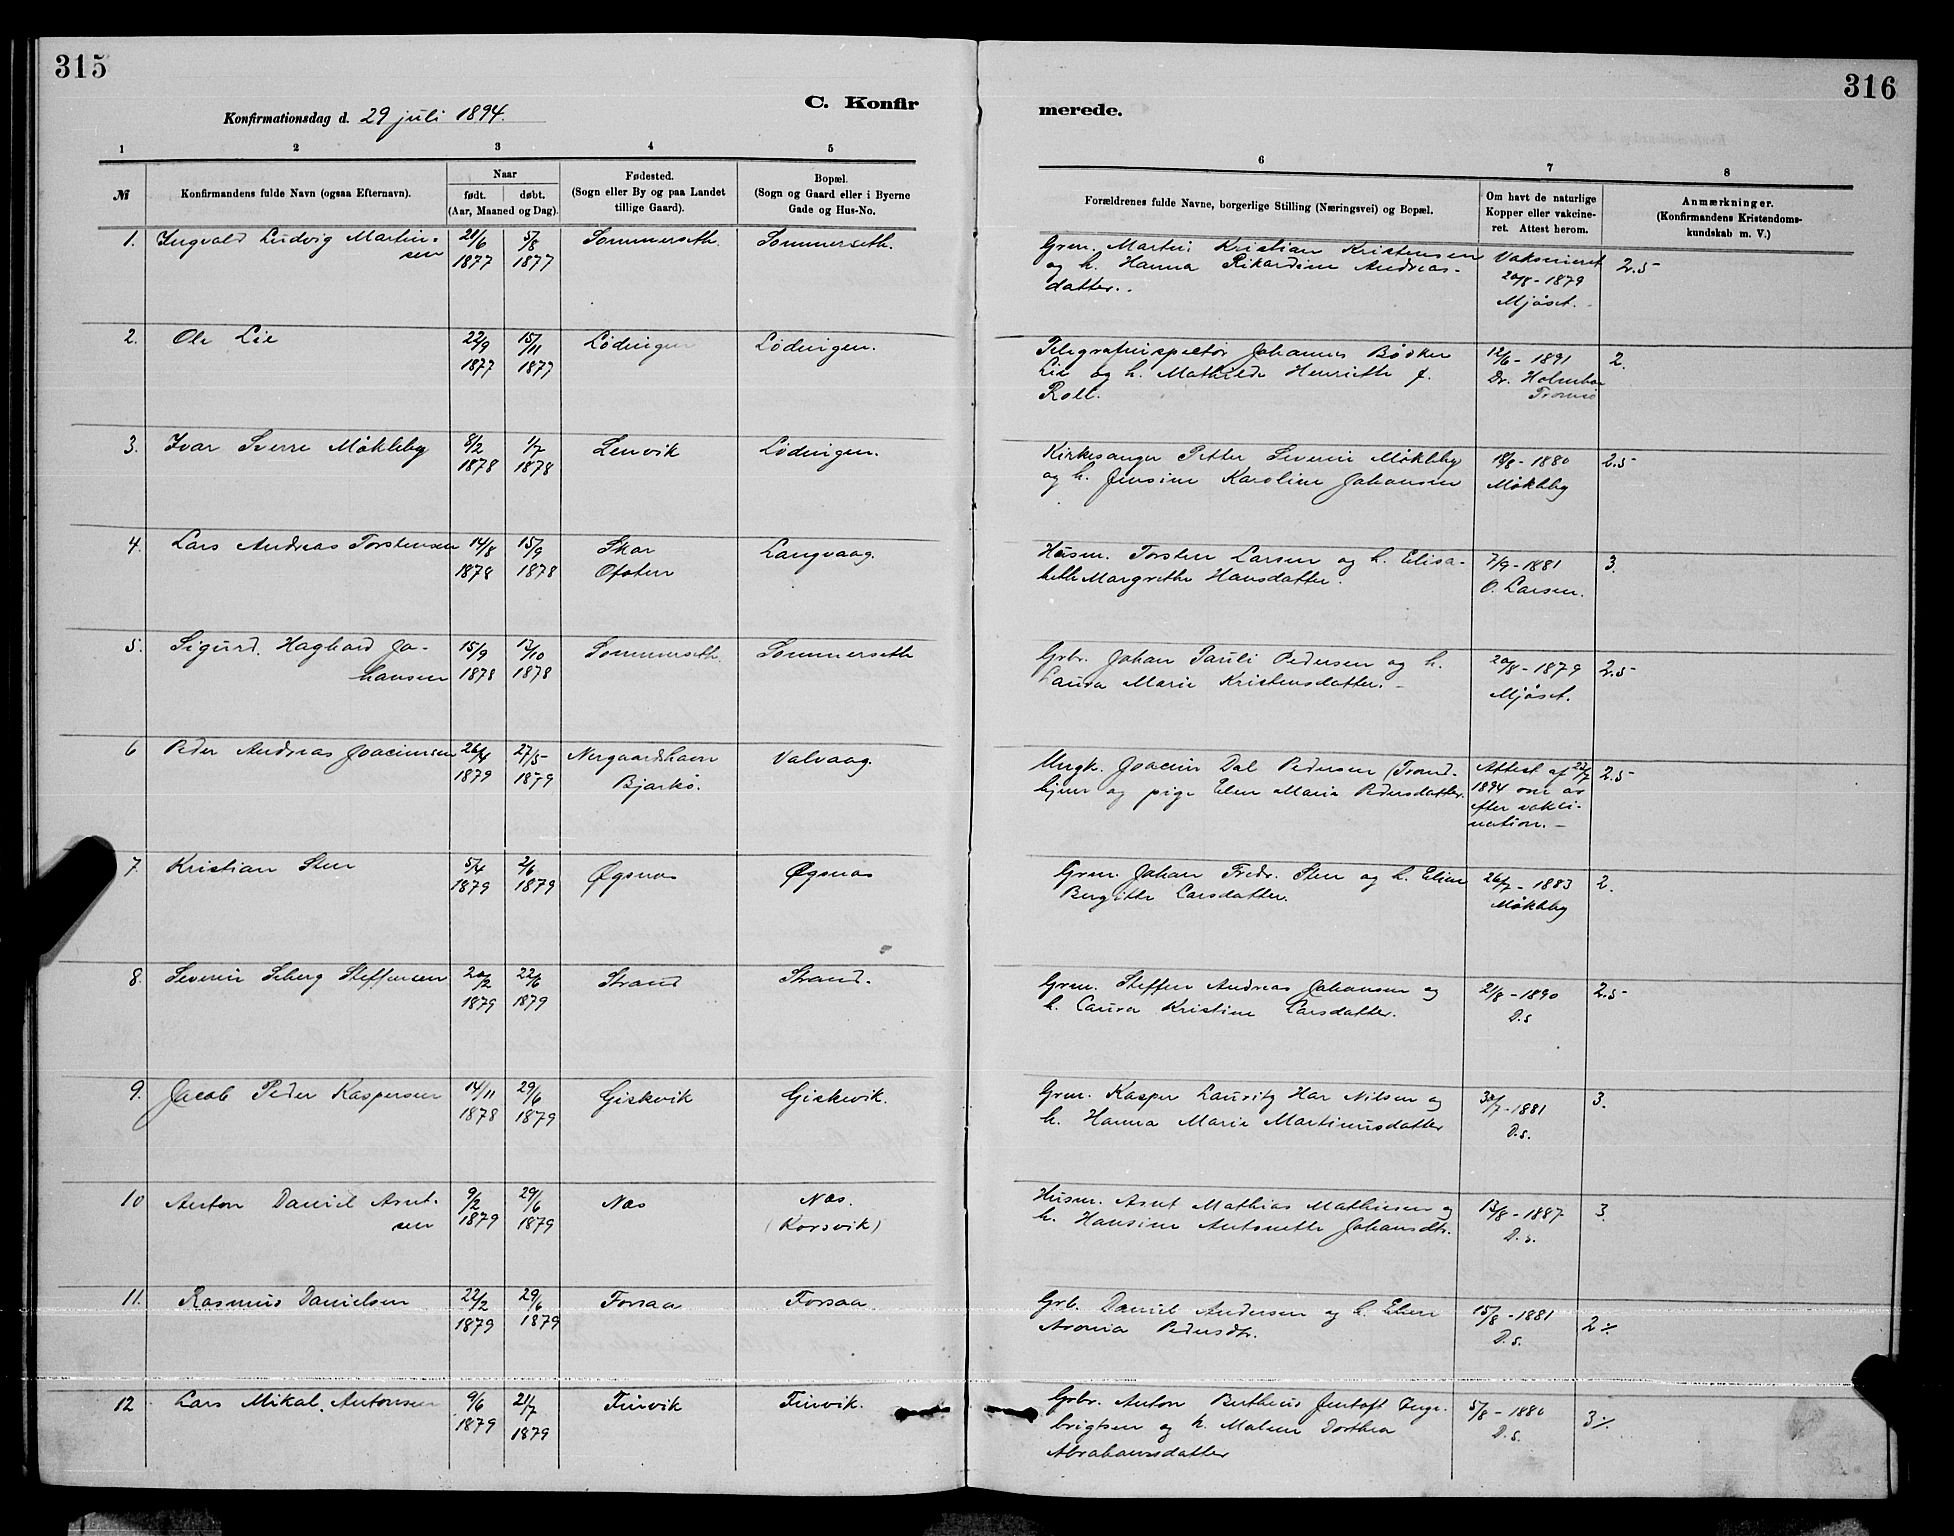 315
316
C. Konfir
merede.
Konfirmationsdag d. 29 juli 1894.
1 2 3 4 5
6 7 8
№ Konfirmandens fulde Navn (ogsaa Efternavn).
Naar
født. døbt.
(Aar, Maaned og Dag).
Fødested.
(Sogn eller By og paa Landet
tillige Gaard).
Bopæl.
(Sogn og Gaard eller i Byerne
Gade og Hus-No.
Forældrenes fulde Navne, borgerlige Stilling (Næringsvei) og Bopæl.
Om havt de naturlige
Kopper eller vakcine-
ret. Attest herom.
Anmærkninger.
(Konfirmandens Kristendoms-
kundskab m. V.)
1. Ingvald Ludvig Martin- 21/6 5/8 Sommerseth. Sommerseth.
sen 1877 1877
Grm. Martin Kristian Kristensen Vaksineret 2.5
og h. Hanna Rikardine Andreas- 20/8 - 1879
datter. Mjøset.
2. Ole Lie 22/9 15/11 Lødingen Lødingen.
1877 1877
Telegrafinspektør Johannes Bødker 12/6 - 1891 2.
Lie og h. Mathilde Henriette f. Dr. Holmboe
Roll. Tromsø
3. Ivar Sverre Møkleby 8/2 1/7 Lenvik Lødingen.
1878 1878
Kirkesanger Petter Severin Møkleby 18/8 - 1880 2.5
og h. Jensine Karoline Johansen Møkleby
4. Lars Andreas Torstensen 14/8 15/9 Skar Langvaag.
1878 1878 Ofoten
Husm. Torsten Larsen og h. Elisa- 7/9 - 1881 3.
beth Margrethe Hansdatter. O. Larsen.
5. Sigurd Hagbard Jo- 15/9 13/10 Sommerseth. Sommerseth
hansen 1878 1878
Grbr. Johan Pauli Pedersen og h. 20/8 - 1879 2.5
Laura Marie Kristensdatter. Mjøset.
6 Peder Andreas Joacimsen 26/4 27/5 Nergaardshavn Valvaag.
1879 1879 Bjarkø.
Ungk. Joacim Dal Pedersen (Trond- Attest af 22/7 2.5
hjem og pige Elen Maria Pedersdatter. 1894 om ar
efter vakci-
nation.
7. Kristian Sten 5/4 2/6 Øgsnas Øgsnas
1879 1879
Grm. Johan Fredr. Sten og h. Eline 26/7 - 1883 2.
Bergitte Larsdatter. Møkleby
8. Severin Seberg Steffensen 20/2 22/6 Strand Strand.
1879 1879
Grm. Steffen Andreas Johansen og 21/8 - 1890 2.5
h. Laura Kristine Larsdatter. D.s
9. Jacob Peder Kaspersen 14/11 29/6 Giskevik Giskevik.
1878 1879
Grm. Kasper Lauritz Har Nilsen og 30/7 - 1881 3.
h. Hanna Marie Martinusdatter D.s.
10 Anton Daniel Arnt- 9/2 29/6 Næs Næs.
sen 1879 1879 (Korsvik)
Husm. Arnt Mathias Mathiesen og 13/8 - 1887 3.
h. Hansine Antonette Johansdtr. D.s.
11. Rasmus Danielsen 22/2 29/6 Forsaa Forsaa
1879 1879
Grb. Daniel Andersen og h. Elen 15/8 - 1881 2 ⁒
Aronia Pedersdtr. D.s.
12 Lars Mikal Antonsen 9/6 21/7 Finvik Finvik.
1879 1879
Grbr. Anton Bertheus Jentoft Inge- 5/8 - 1880 3 ⁒
brigtsen og h. Malene Dorthea D.s.
Abrahamsdatter